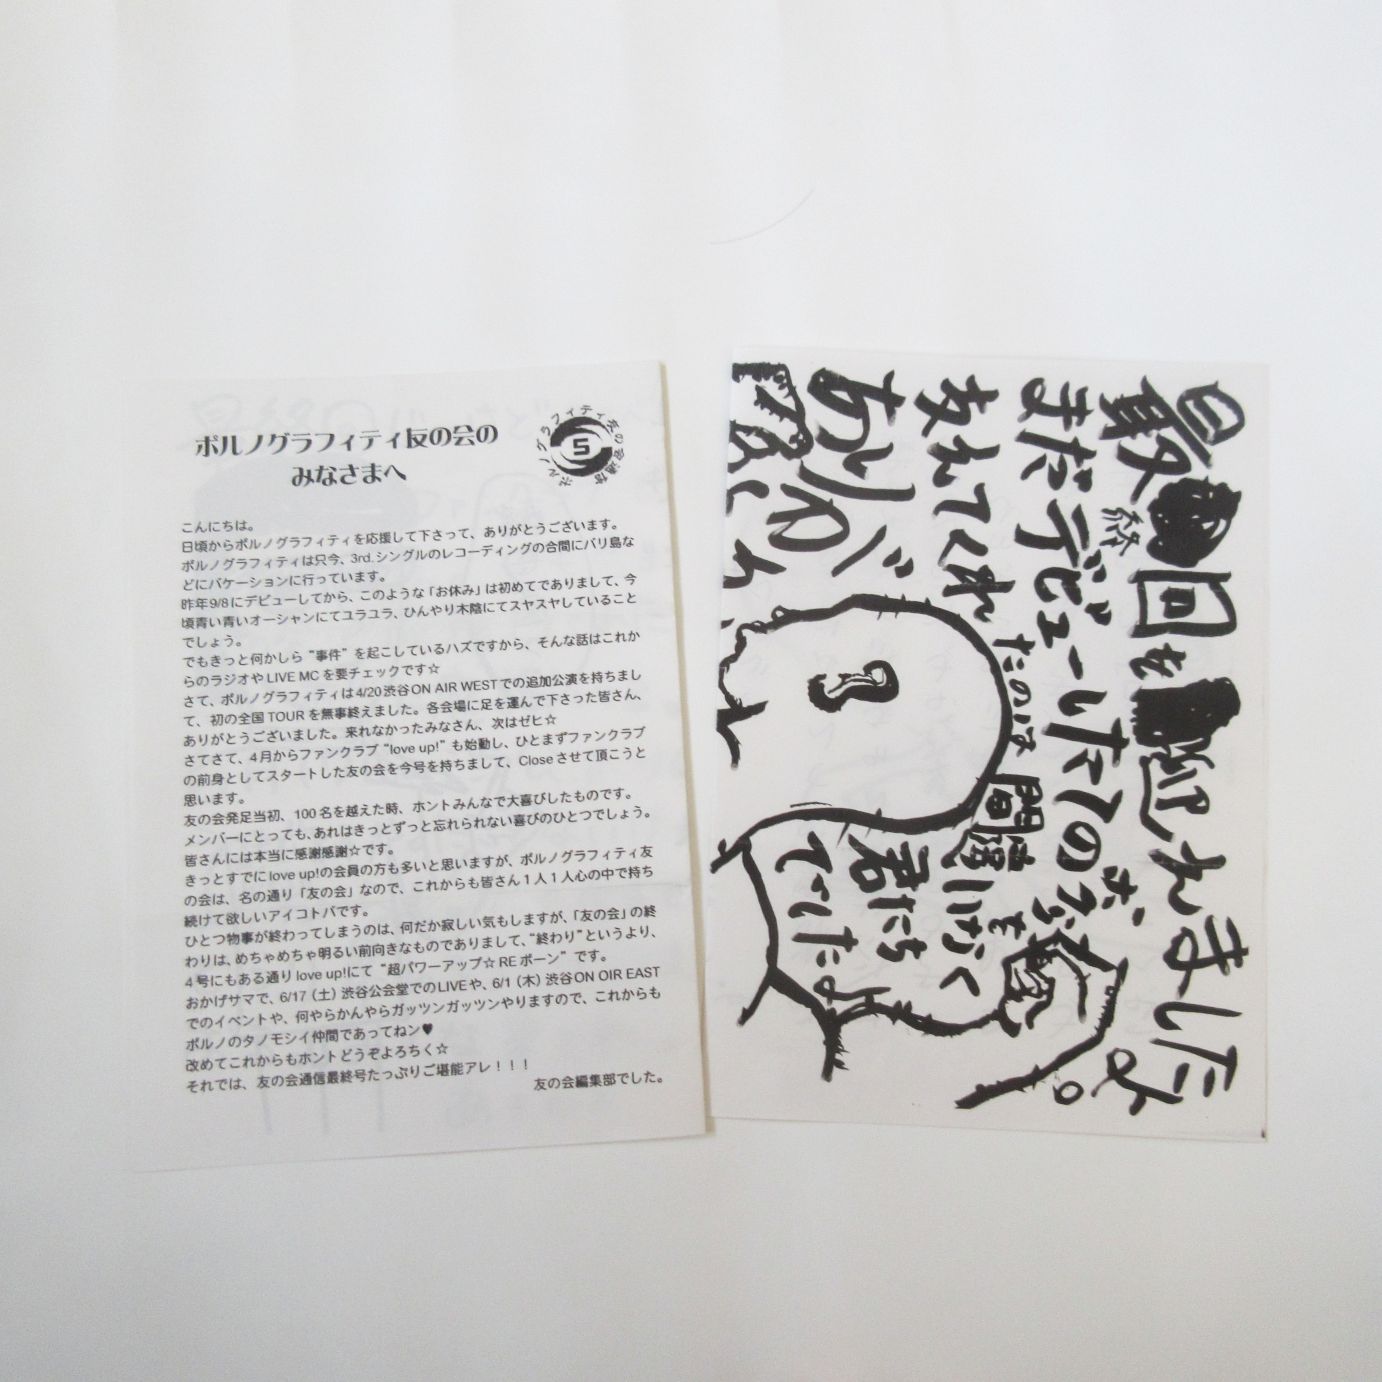 ポルノグラフィティ友の会の
みなさまへ
ポルノグラフィティ友の会通信
5
こんにちは。
日頃からポルノグラフィティを応援して下さって、ありがとうございます。
ポルノグラフィティは只今、3rd.シングルのレコーディングの合間にバリ島な
どにバケーションに行っています。
昨年9/8にデビューしてから、このような「お休み」は初めてでありまして、今
頃青い青いオーシャンにてユラユラ、ひんやり木陰にてスヤスヤしていること
でしょう。
でもきっと何かしら“事件”を起こしているハズですから、そんな話はこれか
らのラジオやLIVE MCを要チェックです☆
さて、ポルノグラフィティは4/20渋谷ON AIR WESTでの追加公演を持ちまし
て、初の全国TOURを無事終えました。各会場に足を運んで下さった皆さん、
ありがとうございました。来れなかったみなさん、次はゼヒ☆
さてさて、4月からファンクラブ“love up!”も始動し、ひとまずファンクラブ
の前身としてスタートした友の会を今号を持ちまして、Closeさせて頂こうと
思います。
友の会発足当初、100名を越えた時、ホントみんなで大喜びしたものです。
メンバーにとっても、あれはきっとずっと忘れられない喜びのひとつでしょう。
皆さんには本当に感謝感謝☆です。
きっとすでにlove up!の会員の方も多いと思いますが、ポルノグラフィティ友
の会は、名の通り「友の会」なので、これからも皆さん1人1人心の中で持ち
続けて欲しいアイコトバです。
ひとつ物事が終わってしまうのは、何だか寂しい気もしますが、「友の会」の終
わりは、めちゃめちゃ明るい前向きなものでありまして、“終わり”というより、
4号にもある通りlove up!にて“超パワーアップ☆REボーン”です。
おかげサマで、6/17（土）渋谷公会堂でのLIVEや、6/1（木）渋谷ON OIR EAST
でのイベントや、何やらかんやらガッツンガッツンやりますので、これからも
ポルノのタノモシイ仲間であってねン♥
改めてこれからもホントどうぞよろちく☆
それでは、友の会通信最終号たっぷりご堪能アレ！！！
友の会編集部でした。
最終回を迎えれましたよ。
まだデビューしたてのボクらを
支えてくれたのは間違いなく
君たちでしたよ
ありが